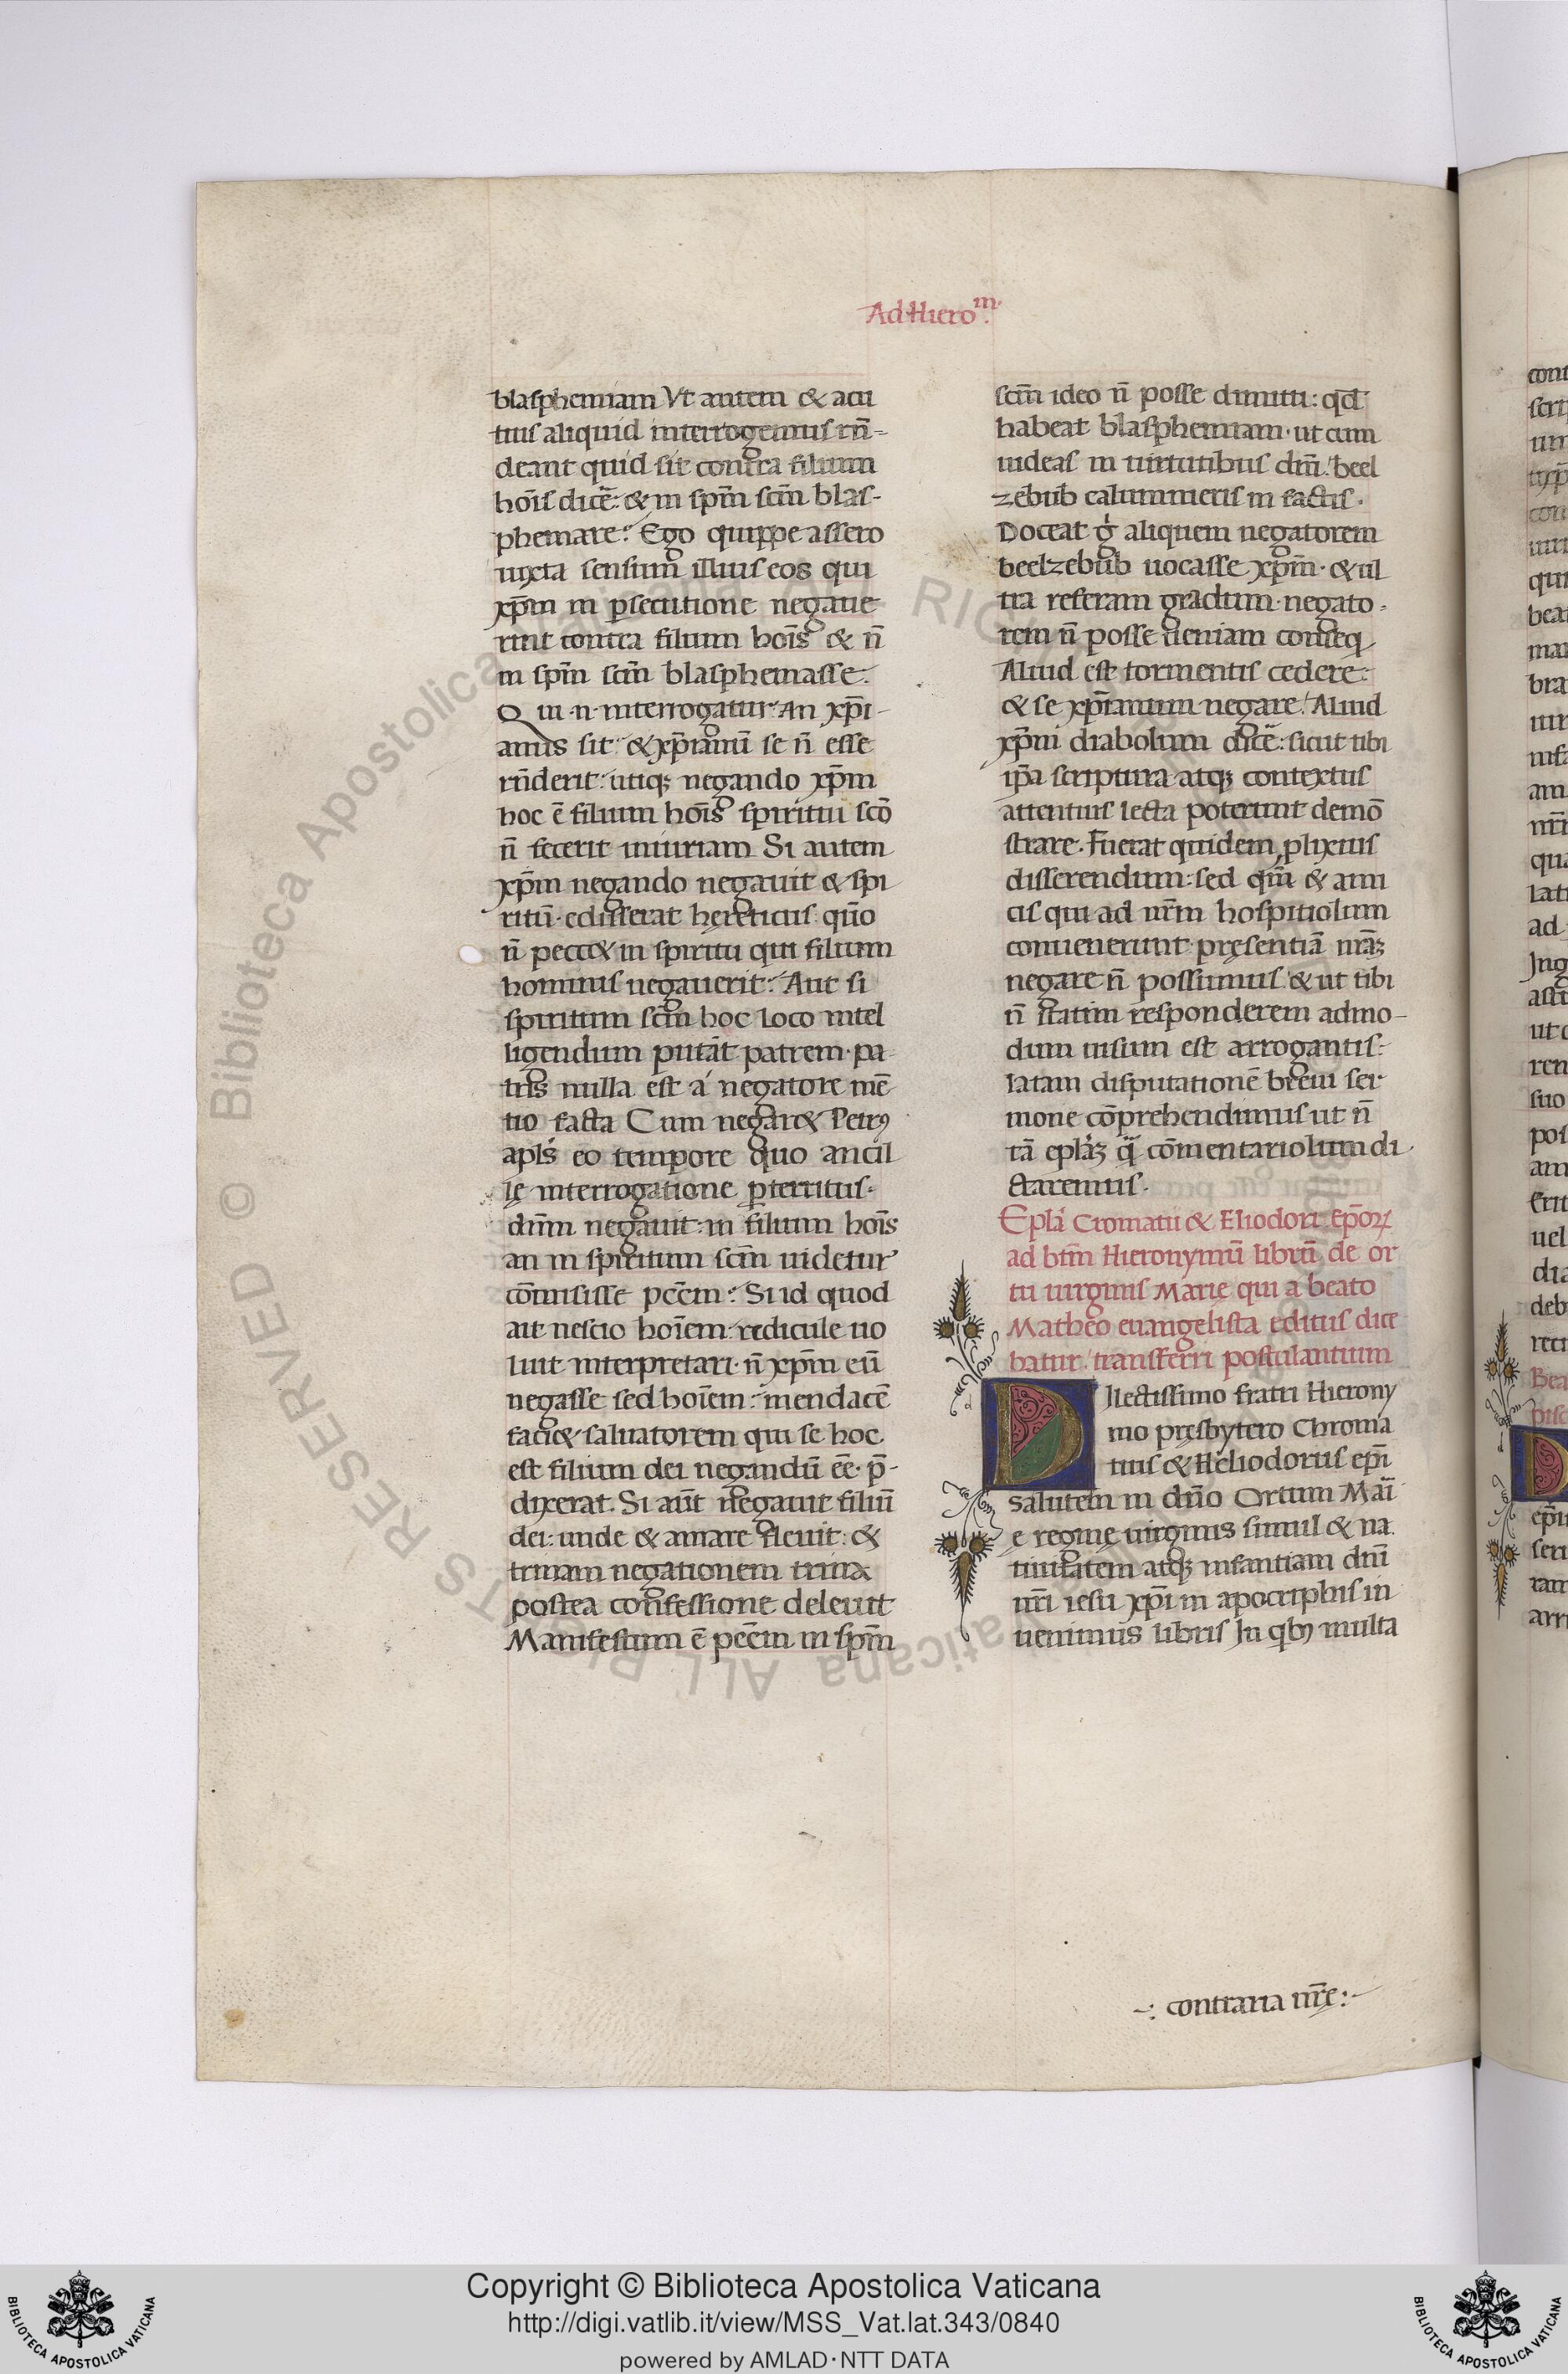 Ad Hieroᵐ.
blasphemiam Vt autem & acu
tius aliquid interrogemus rn̄-
deant quid sit contra filium
hoīs dicē: & in spm̄ scm̄ blas-
phemare? Ego quippe assero
iuxta sensum illius eos qui
xp̄m in ꝑsecutione negaue
rint contra filium hoīs & n̄
in spm̄ scm̄ blasphemasse.
Qui n interrogatur An xp̄i-
anus sit: & xp̄ianū se n̄ esse
rn̄derit: utiqꝫ negando xp̄m
hoc ē filium hoīs spiritui scō
n̄ fecerit iniuriam Si autem
xp̄m negando negauit & spi
ritū edisserat hęreticus quō
n̄ pecc& in spiritu qui filium
hominis negauerit? Aut si
spiritum scm̄ hoc loco intel
ligendum putāt patrem pa
tris nulla est á negatore mē
tio facta Cum negar& Petrꝰ
apls̄ eo tempore quo ancil
lę interrogatione ꝑterritus.
dnm̄ negauit: in filium hoīs
an in spiritum scm̄ uidetur
cōmisisse pccm̄? Si id quod
ait nescio hoīem: ridicule uo
luit interpretari n̄ xp̄m eū
negasse sed hoīem: mendacē
faci& saluatorem qui se hoc
est filium dei negandū eē p̄-
dixerat. Si aūt negauit filiū
dei: unde & amare fleuit: &
trinam negationem trina
postea confessione deleuit
Manifestum ē pccm̄ in spm̄
scm̄ ideo n̄ posse dimitti: qđ
habeat blasphemiam ut cum
uideas in uirtutibus dm̄: beel
zebub calumnieris in factis.
Doceat g̍ aliquem negatorem
beelzebub uocasse xp̄m & ul
tra referam gradum negato
rem n̄ posse ueniam conseq
Aliud est tormentis cedere:
& se xp̄ianum negare: Aliud
xp̄m diabolum dicē: sicut tibi
ip̄a scriptura atqꝫ contextus
attentius lecta poterunt demō
strare. Fuerat quidem ꝓlixius
disserendum: sed qm̄ & ami
cis qui ad nr̄m hospitiolum
conuenerunt pręsentiā nrāꝫ
negare n̄ possumus & ut tibi
n̄ statim responderem admo-
dum uisum est arrogantis:
latam disputationē breui ser
mone cōprehendimus ut n̄
tā eplāꝫ q̄ cōmentariolum di
ctaremus.
Eplā Cromatii & Eliodori epōꝝ
ad btm̄ Hieronymū librū de or
tu uirginis Marie qui a beato
Matheo euangelista editus dice
batur transferri postulantium
Dilectissimo fratri Hierony
mo pręsbytero Chroma
tius & Heliodorus epī
salutem in dn̄o Ortum Mari
e reginę uirginis simul & na
tiuitatem atqꝫ infantiam dnī
nr̄i iesu xp̄i in apocriphis in
uenimus libris In qbꝰ multa
-: contraria nr̄ę :-
Copyright © Biblioteca Apostolica Vaticana
http://digi.vatlib.it/view/MSS_Vat.lat.343/0840
powered by AMLAD·NTT DATA